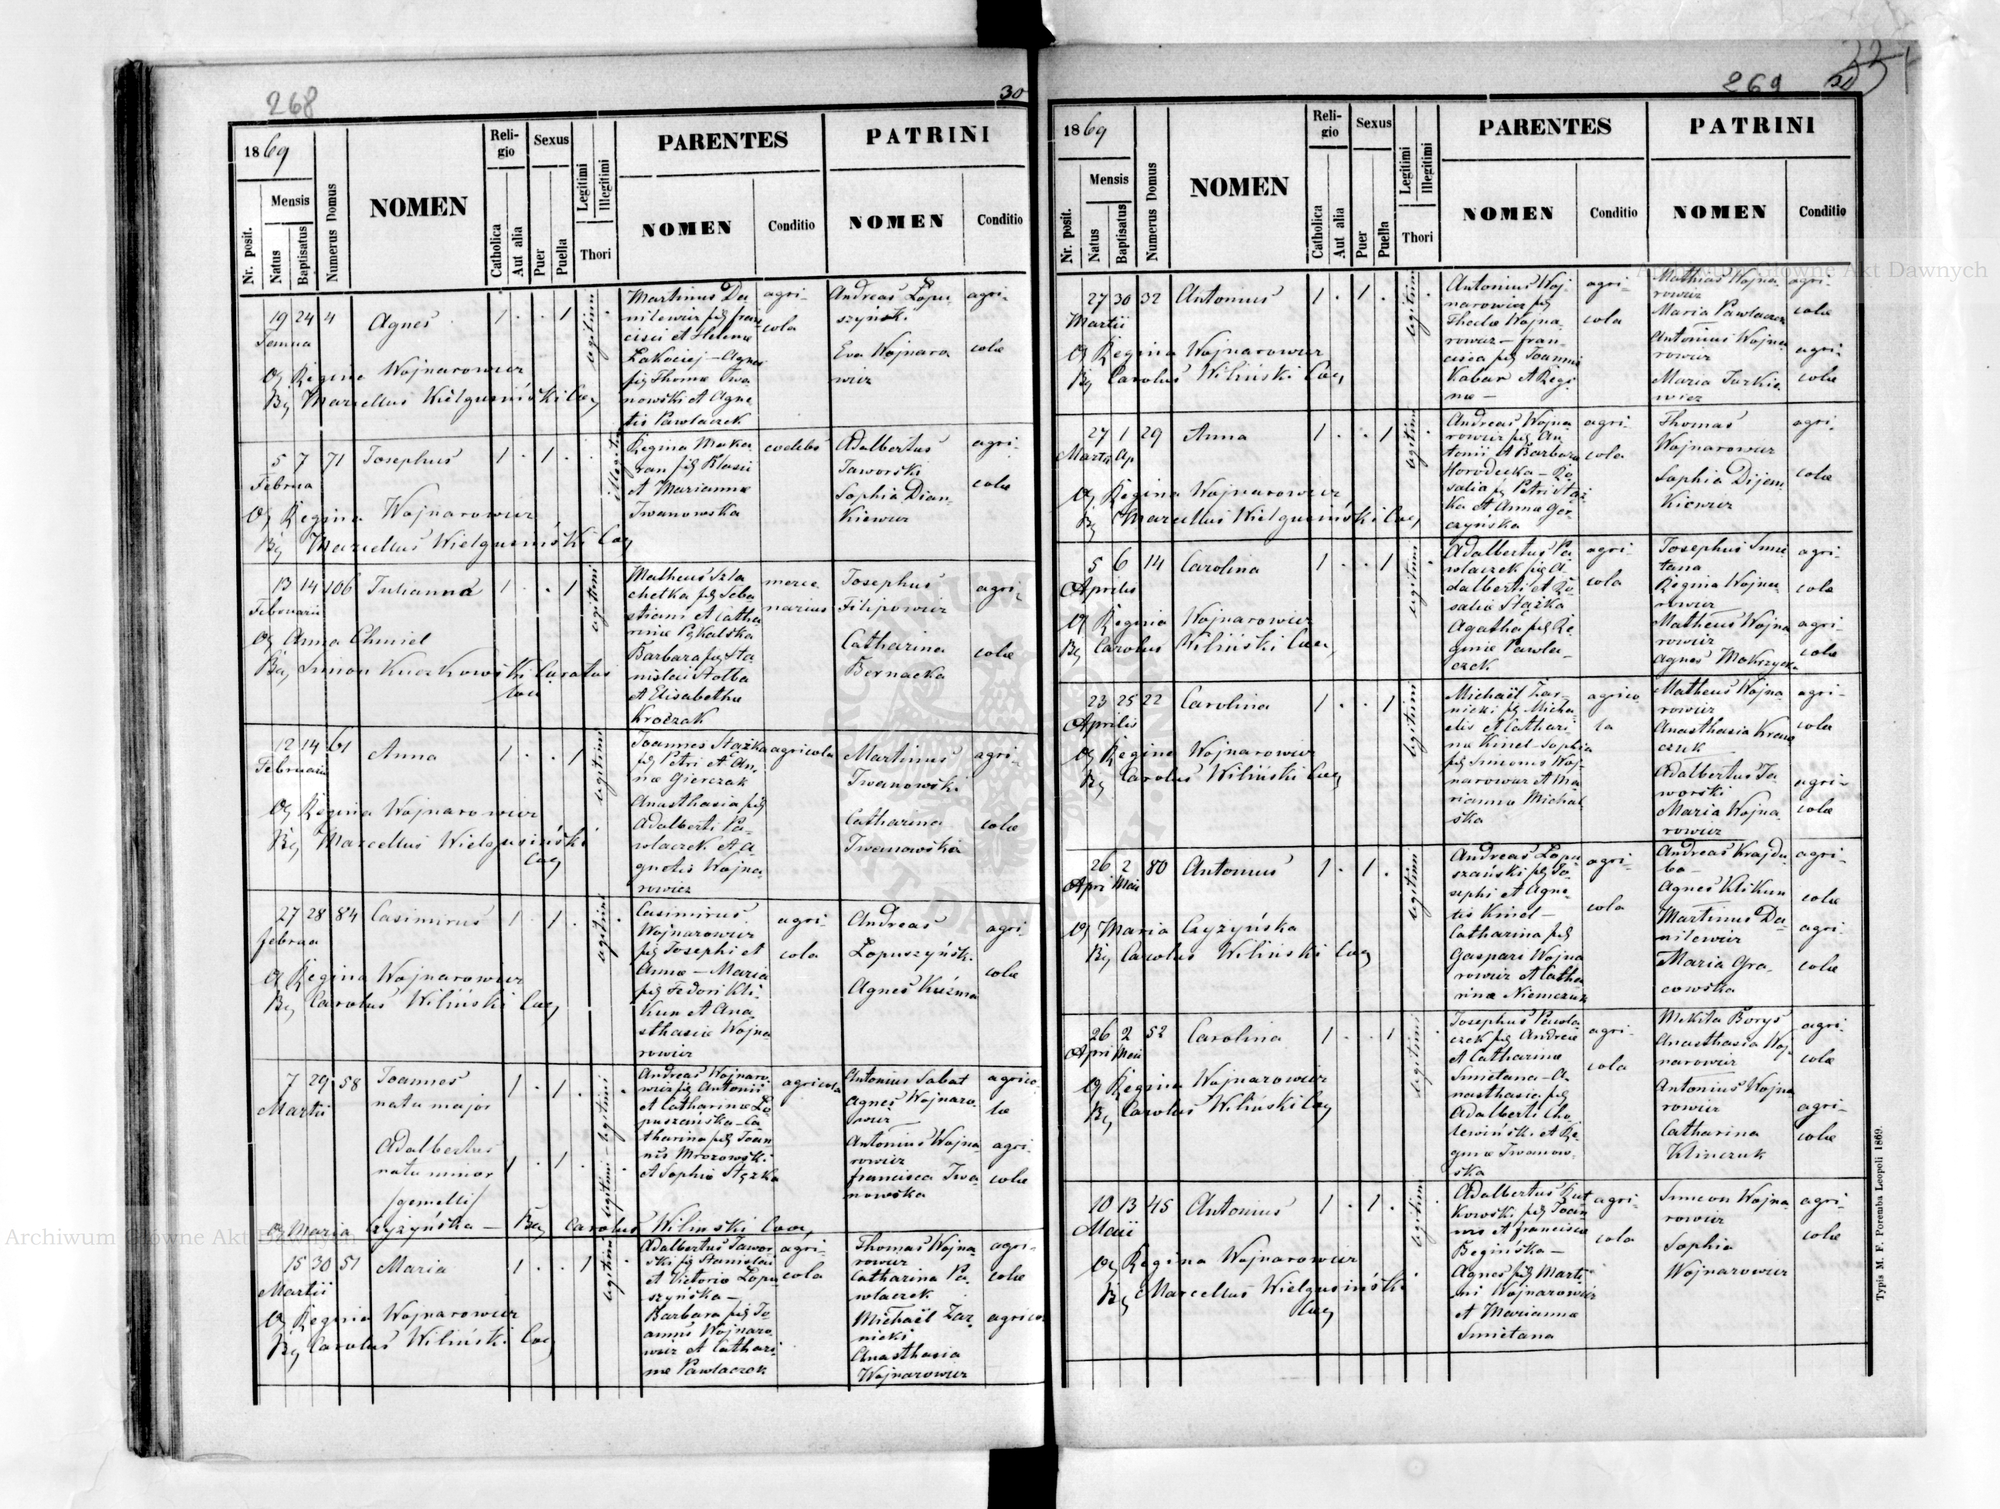 268
30
1869
Nr. posit.
Mensis
Natus
Baptisatus
Numerus Domus
NOMEN
Religio
Catholica
Aut alia
Sexus
Puer
Puella
Legitimi
Illegitimi
Thori
PARENTES
NOMEN
Conditio
PATRINI
NOMEN
Conditio
19 24 4 Agnes 1 . . 1
legitimi
Martinus Da
nilewicz fil. fran
cisci et Helenae
Agnes
fil. Thomae Iwa
nowski et Agne
tis Pawlaczek
agri-
cola
Andreas Łopu
szyński
Eva Wojnaro
wicz
agri-
colae
Regina Wojnarowicz
Marcellus Wielgusiński
5 7 71 Josephus 1 . 1 .
Februa
illegitimi
Regina Maka
ran fil. Blasii
et Mariannae
Iwanowska
coelebs
Adalbertus
Jaworski
Sophia Dian-
kiewicz
agri-
colae
Regina Wojnarowicz
Marcellus Wielgusiński
13 14 106 Julianna 1 . . 1
Februarii
legitimi
Matheus Szla
chetka fil. Seba
stiani et Catha
rinae Pękalska
Barbara fil. Sta
nislai Stolba
et Elisabethae
Kroczak
merce
narius
Josephus
Filipowicz
Catharina
Bernacka
agri-
colae
Anna Chmiel
Simon Kuczkowski Curatus
Loci
12 14 61 Anna 1 . . 1
Februarii
legitimi
Joannes Stążka
fil. Petri et An-
nae Gierczak
Anasthasia fil.
Adalberti Pa-
wlaczek et A
gnetis Wojna-
rowicz
agricola
Martinus
Iwanowski
Catharina
Iwanowska
agri-
colae
Regina Wojnarowicz
Marcellus Wielgusiński
27 28 84 Casimirus 1 . 1 .
februa
legitimi
Casimirus
Wojnarowicz
fil. Josephi et
Annae – Maria
fil. Fedori Kli-
kun et Ana-
sthasiae Wojna
rowicz
agri
cola
Andreas
Łopuszyński
Agnes Kuźma
agri-
colae
Regina Wojnarowicz
Carolus Wiliński
7 29 58 Joannes 1 . 1 .
Martii natu major
Adalbertus
natu minor 1 . 1 .
/gemelli/
legitimi – legitimi
Andreas Wojnaro
wicz fil. Antonii
et Catharinae Ło
puszańska – Ca
tharina fil. Joan
nis Mrozowski
et Sophiae Stążka
agricola
Antonius Sabat
Agnes Wojnaro-
wicz
Antonius Wojna
rowicz
francisca Iwa
nowska
agrico
lae
agri-
colae
Maria Czyżyńska – Carolus Wiliński
15 30 51 Maria 1 . . 1
Martii
legitimi
Adalbertus Jawor
ski fil. Stanislai
et Victoriae Łopu
szyńska –
Barbara fil. Jo
annis Wojnaro-
wicz et Cathari
nae Pawlaczek
agri-
cola
Thomas Wojna
rowicz
Catharina Pa-
wlaczek
Michaël Żar-
nicki
Anasthasia
Wojnarowicz
agri-
colae
Regina Wojnarowicz
Carolus Wiliński
269
1869
Nr. posit.
Mensis
Natus
Baptisatus
Numerus Domus
NOMEN
Religio
Catholica
Aut alia
Sexus
Puer
Puella
Legitimi
Illegitimi
Thori
PARENTES
NOMEN
Conditio
PATRINI
NOMEN
Conditio
27 30 32 Antonius 1 . 1 .
Martii
legitimi
Antonius Woj-
narowicz fil.
Wojna-
rowicz – fran-
cisca fil. Joannis
Kabar et Regi-
nae –
agri-
cola
Mathias Wojna
rowicz
Maria Pawlaczek
Antonius Wojna
rowicz
Maria Turkie
wicz
agri-
colae
agri-
colae
Regina Wojnarowicz
Carolus Wiliński
27 1 29 Anna 1 . . 1
Martii Ap
legitimi
Andreas Wojna
rowicz fil. An
tonii et Barbara
Horodecka – Ro
salia fil. Petri Stąż
ka et Anna Ger-
czyńska
agri-
cola
Thomas
Wojnarowicz
Sophia Dijem-
kiewicz
agri-
colae
Regina Wojnarowicz
Marcellus Wielgusiński
5 6 14 Carolina 1 . . 1
Aprilis
legitimi
Adalbertus Pa-
wlaczek fil. A
dalberti et Ro-
salia Stążka
Agatha fil. Re
ginae Pawla-
czek
agri-
cola
Josephus Smie
tana
Regina Wojna-
rowicz
Matheus Wojna
rowicz
Agnes Mokrzycka
agri-
colae
agri-
colae
Regina Wojnarowicz
Carolus Wiliński
23 25 22 Carolina 1 . . 1
Aprilis
legitimi
Michaël Żar-
nicki fil. Micha
elis et Cathari-
na Kinel – Sophia
fil. Simonis Woj-
narowicz et Ma-
rianna Michal
ska
agrico
la
Matheus Wojna
rowicz
Anasthasia Krawe
czuk
Adalbertus Ja
worski
Maria Wojna-
rowicz
agri-
cola
agri-
colae
Regina Wojnarowicz
Carolus Wiliński
26 2 80 Antonius 1 . 1 .
Apri Maii
legitimi
Andreas Łopu
szański fil. Jo-
sephi et Agne-
tis Kinel –
Catharina fil.
Gaspari Wojna
rowicz et Catha
rinae Niemczuk
agri-
cola
Andreas Krajdu-
ba –
Agnes Klikun
Martinus Da-
nilewicz
Maria Gra-
cowska
agri-
colae
agri-
colae
Maria Czyżyńska
Carolus Wiliński
26 2 52 Carolina 1 . . 1
Apri Maii
legitimi
Josephus Pawla
czek fil. Andreae
et Catharinae
Smietana – A-
nasthasia fil.
Adalberti Cho-
lewiński et Re-
ginae Iwanow-
ska
agri-
cola
Mikita Borys
Anasthasia Woj-
narowicz
Antonius Wojna
rowicz
Catharina
Klimczuk
agri-
colae
agri-
colae
Regina Wojnarowicz
Carolus Wiliński
10 13 45 Antonius 1 . 1 .
Maii
legitimi
Adalbertus Rut
kowski fil. Joan
nis et francisca
Begińska –
Agnes fil. Marti-
ni Wojnarowicz
et Marianna
Smietana
agri-
cola
Simeon Wojna
rowicz
Sophia
Wojnarowicz
agri-
colae
Regina Wojnarowicz
Marcellus Wielgusiński
Typis M. F. Poremba Leopoli 1869.
Archiwum Główne Akt Dawnych
Archiwum Główne Akt Dawnych